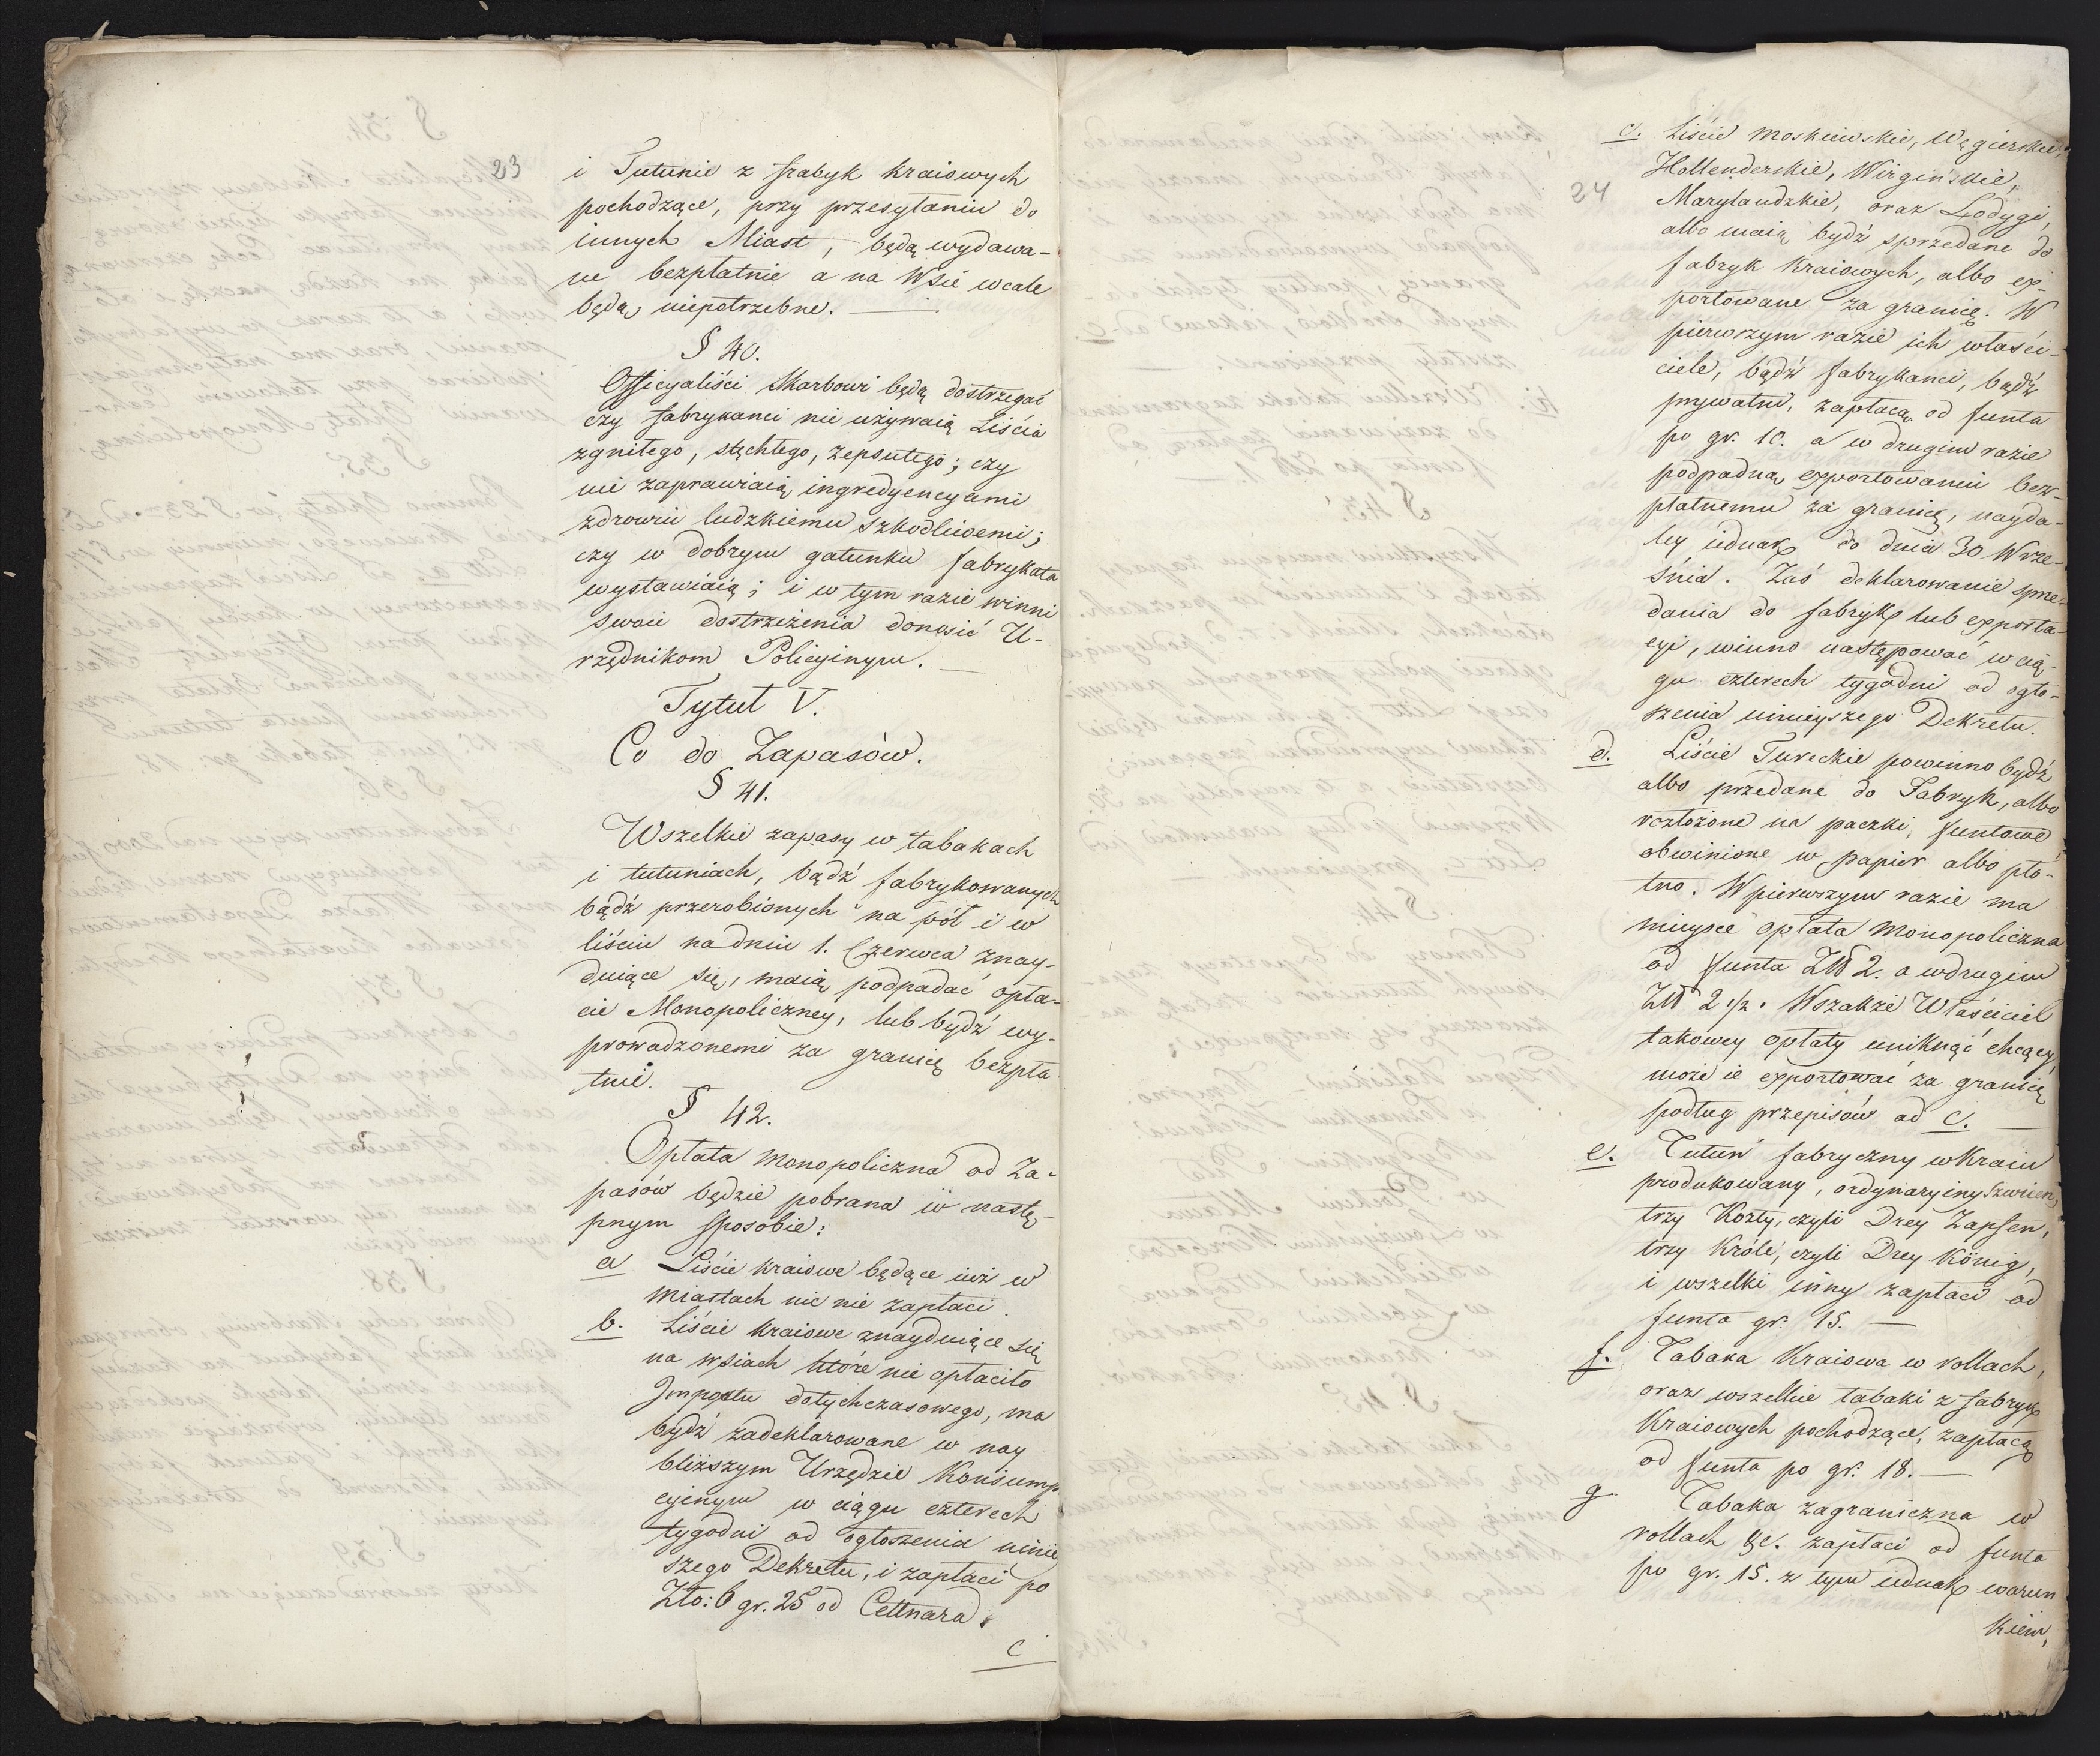 23
i Tutunie z fabryk kraiowych
pochodzące, przy przesyłaniu do
innych Miast, będą wydawa-
ne bezpłatnie a na Wsie wcale
będą niepotrzebne.
§ 40.
Officyaliści Skarbowi będą dostrzegać
czy fabrykanci nie używaią Liścia
zgniłego, stęchłego, zepsutego; czy
nie zaprawiaią ingredyencyami
zdrowiu ludzkiemu szkodliwemi;
czy w dobrym gatunku fabrykata
wystawiaią; i w tym razie winni
swoie dostrzeżenia donosić U-
rzędnikom Policyinym.
Tytuł V.
Co do Zapasów.
§ 41.
Wszelkie zapasy w tabakach
i tutuniach, bądź fabrykowanych
bądź przerobionych na pół i w
liściu na dniu 1. Czerwca znay-
duiące się, maią podpadać opła-
cie Monopoliczney, lub bydź wy-
prowadzonemi za granicę bezpła-
tnie.
§ 42.
Opłata monopoliczna od Za-
pasów będzie pobrana w nastę-
pnym sposobie:
a Liście kraiowe będące iuż w
miastach nic nie zapłaci.
b. Liście kraiowe znayduiące się
na wsiach które nie opłaciło
Impostu dotychczasowego, ma
bydź zadeklarowane w nay
bliższym Urzędzie Konsump
cyinym w ciągu czterech
tygodni od ogłoszenia ninie
szego Dekretu, i zapłaci po
Zło: 6 gr. 25 od Cettnara.
c
24
c. Liście moskiewskie, Węgierskie,
Hollenderskie, Wirgińskie,
Marylandzkie, oraz Łodygi,
albo maią bydź sprzedane do
fabryk Kraiowych, albo ex-
portowane za granicę. W
pierwszym razie ich właści-
ciele, bądź fabrykanci, bądź
prywatni, zapłacą od funta
po gr. 10. a w drugim razie
podpadną exportowaniu bez-
płatnemu za granicę, nayda-
ley iednak do dnia 30 Wrze-
śnia. Zaś deklarowanie sprze-
dania do fabryk lub exporta-
cyi, winno następować w cią-
gu czterech tygodni od ogło-
szenia ninieyszego Dekretu.
d. Liście Tureckie powinno bydź
albo przedane do Fabryk, albo
rozłożone na paczki, funtowe
obwinione w papier albo płó-
tno. W pierwszym razie ma
mieysce opłata monopoliczna
od funta Złł 2. a w drugim
Złł 2 1/2. Wszakże Właściciel
takowey opłaty uniknąć chcący,
może ie exportować za granicę
podług przepisów ad c.
e. Tutuń fabryczny w Kraiu
produkowany, ordynaryiny Szwicen,
trzy Kozły, czyli Drey Zapfen,
trzy Króle, czyli Drey König,
i wszelki inny zapłaci od
funta gr. 15.
f. Tabaka Kraiowa w rollach,
oraz wszelkie tabaki z fabryk
Kraiowych pochodzące, zapłacą
od funta po gr. 18.
g Tabaka zagraniczna w
rollach &c. zapłaci od funta
po gr. 15. z tym iednak warun
kiem,